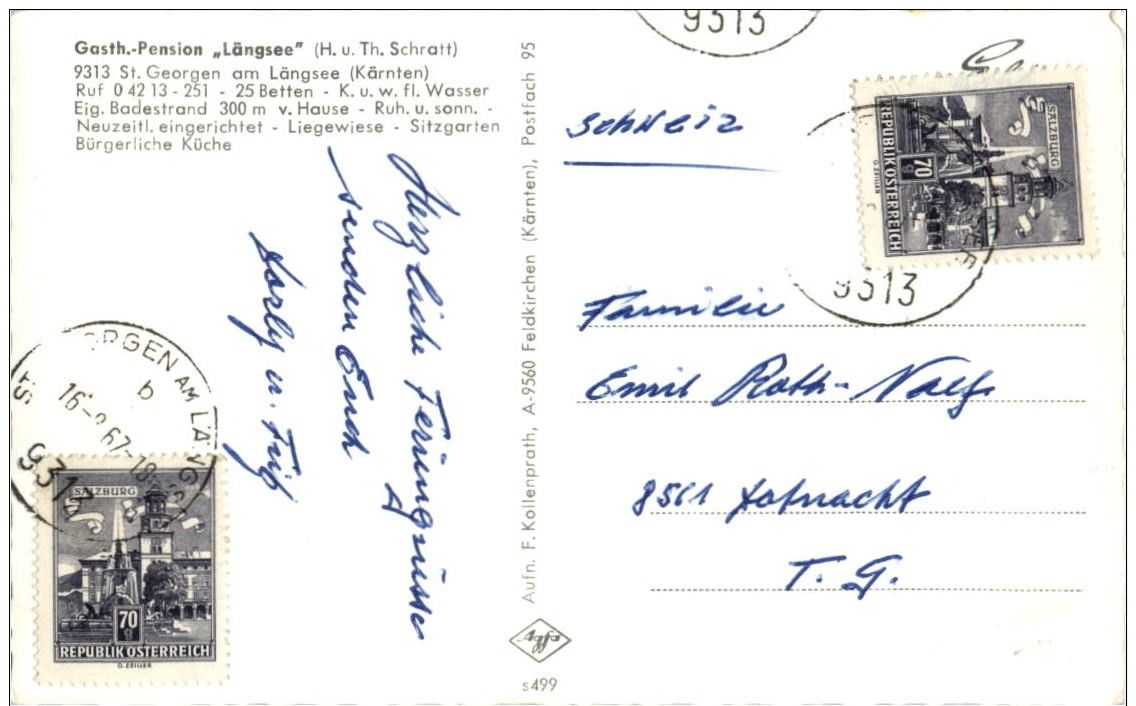 Gasth.-Pension „Längsee" (H. u. Th. Schratt)
9313 St. Georgen am Längsee (Kärnten)
Ruf 0 42 13 - 251 - 25 Betten - K. u. w. fl. Wasser
Eig. Badestrand 300 m v. Hause - Ruh. u. sonn. -
Neuzeitl. eingerichtet - Liegewiese - Sitzgarten
Bürgerliche Küche
Herzliche Feriengrüsse
senden Euch
u. Fritz
Aufn. F. Kollenprath, A-9560 Feldkirchen (Kärnten), Postfach 95
Agfa
s499
Schweiz
Familie
Emil Roth-Naef
8561 Hofnacht
T. G.
9313
SALZBURG
70
g
REPUBLIK ÖSTERREICH
O. ZEILLER
9313
ORGEN AM LÄNGS
b
67-18
9313
SALZBURG
70
g
REPUBLIK ÖSTERREICH
O. ZEILLER